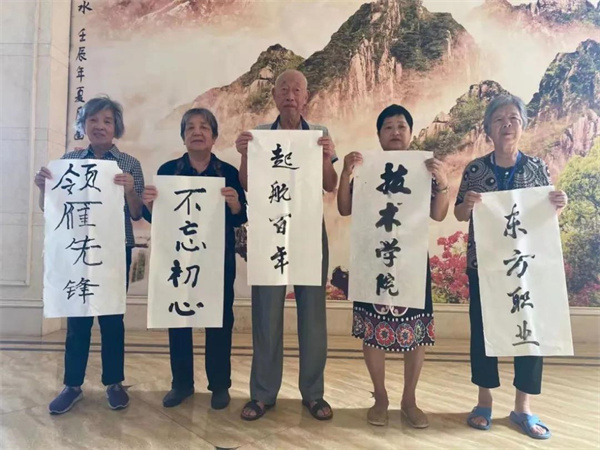 水
壬辰年夏
东方职业
技术学院
起航百年
不忘初心
领雁先锋